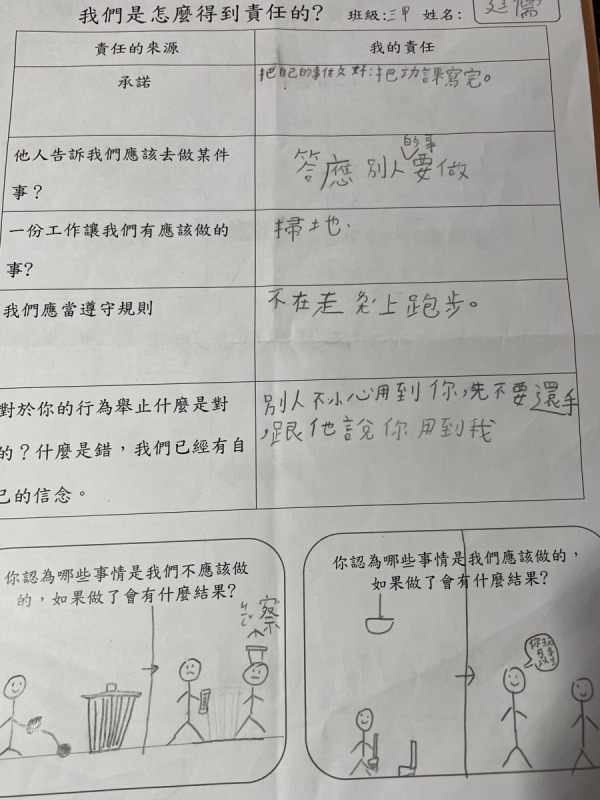 我們是怎麼得到責任的? 班級:三甲 姓名:廷儒
責任的來源
我的責任
承諾
把自己的事做好:把功課寫完。
他人告訴我們應該去做某件
事?
答應別人的事要做
一份工作讓我們有應該做的
事?
掃地.
我們應當遵守規則
不在走 上跑步。
對於你的行為舉止什麼是對
的?什麼是錯,我們已經有自
己的信念。
別人不小心用到你,先不要還手
,跟他說你用到我
你認為哪些事情是我們不應該做
的,如果做了會有什麼結果?
察
你認為哪些事情是我們應該做的,
如果做了會有什麼結果?